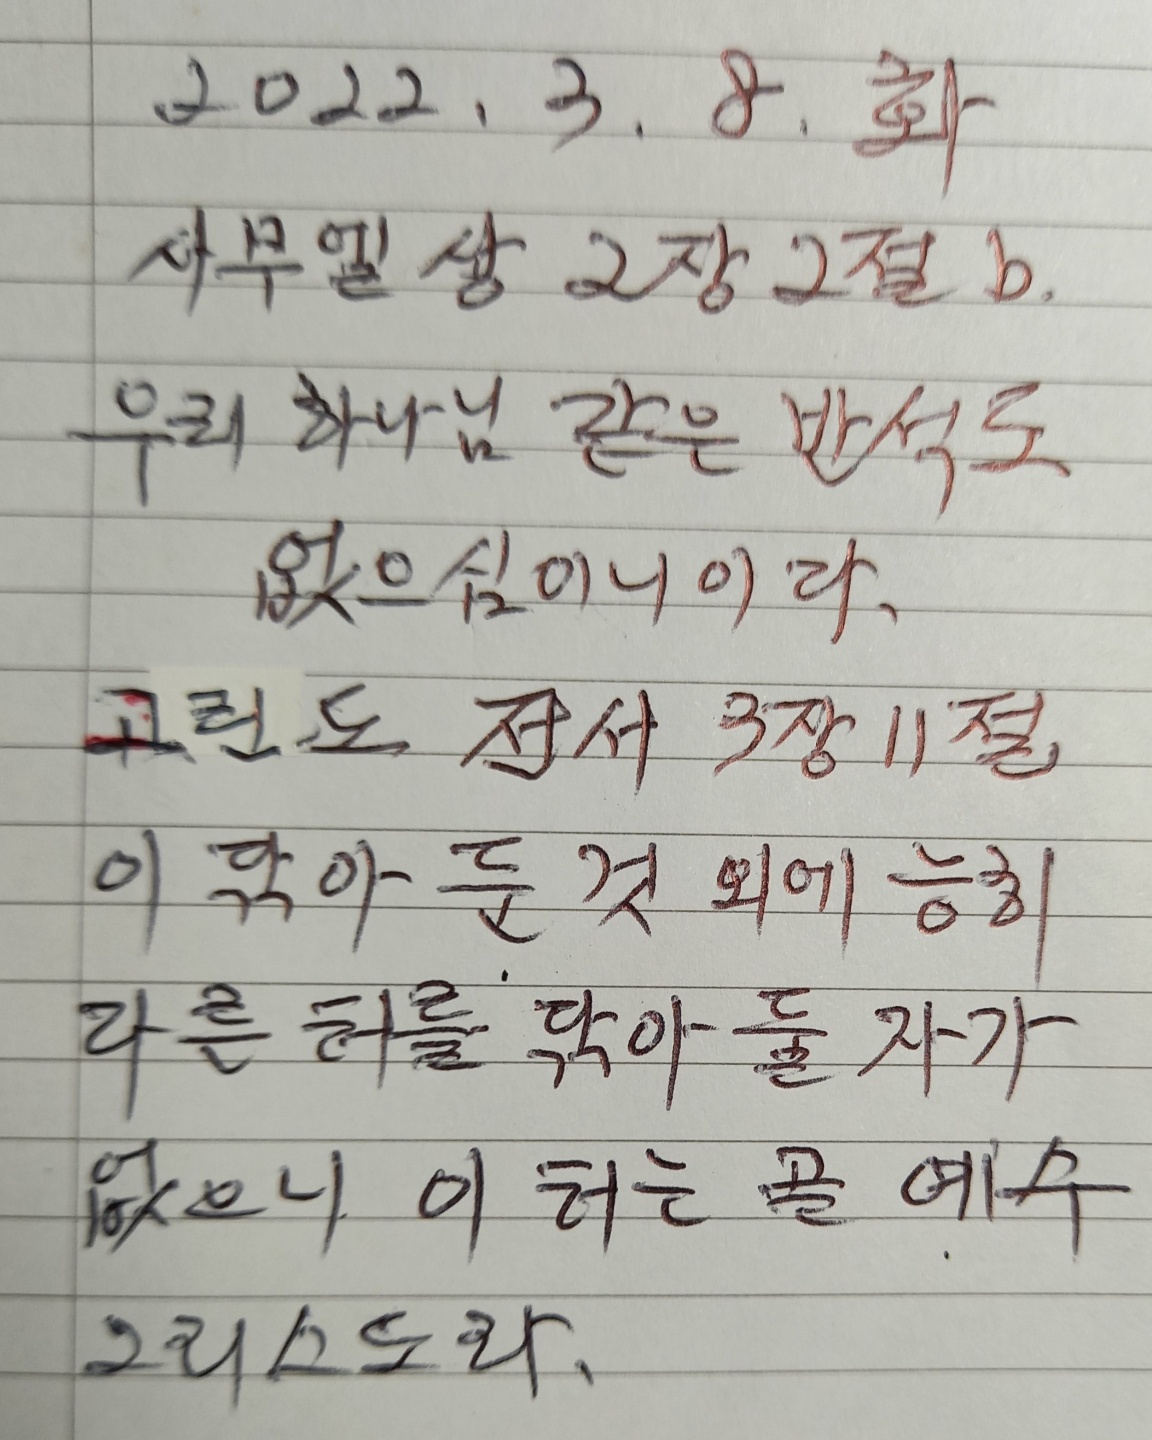 2022. 3. 8. 화
사무엘 상 2장 2절 b.
우리 하나님 같은 반석도
없으심이니이다.
고린도 전서 3장 11절
이 닦아 둔 것 외에 능히
다른 터를 닦아 둘 자가
없으니 이 터는 곧 예수
그리스도라.